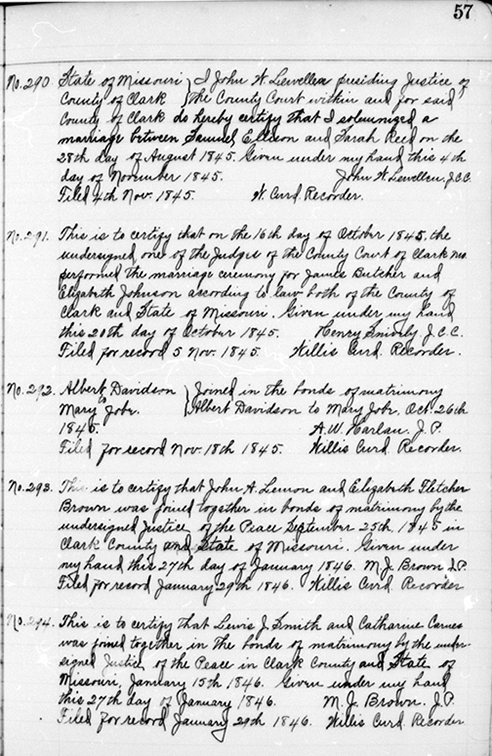 57
No. 290 State of Missouri } I John W. Lewellen presiding Justice of
County of Clark } the County Court within and for said
County of Clark do hereby certify that I solemnized a
marriage between Samuel Ellison and Sarah Reed on the
28th day of August 1845. Given under my hand this 4th
day of November 1845. John W. Lewellen, J.C.C.
Filed 4th Nov. 1845. W. Curd Recorder.
No. 291. This is to certify that on the 16th day of October 1845, the
undersigned, one of the Judges of the County Court of Clark Mo
performed the marriage ceremony for James Butcher and
Elizabeth Johnson according to law both of the County of
Clark and State of Missouri. Given under my hand
this 20th day of October 1845. Henry Snively J.C.C.
Filed for record 5 Nov. 1845. Willis Curd. Recorder.
No. 292. Albert Davidson } Joined in the bonds of matrimony
to
Mary Jobe. } Albert Davidson to Mary Jobe, Oct. 26th
1845. A.W. Harlan. J.P.
Filed for record Nov. 18th 1845. Willis Curd. Recorder.
No. 293. This is to certify that John A. Lemon and Elizabeth Fletcher
Brown was joined together in bonds of matrimony by the
undersigned Justice of the Peace September 25th, 1845 in
Clark County and State of Missouri. Given under
my hand this 27th day of January 1846. M.J. Brown J.P.
Filed for record January 29th 1846. Willis Curd. Recorder
No. 294. This is to certify that Lewis J. Smith and Catharine Carnes
was joined together in the bonds of matrimony by the under-
signed Justice of the Peace in Clark County and State of
Missouri, January 15th 1846. Given under my hand
this 27th day of January 1846. M.J. Brown. J.P.
Filed for record January 29th 1846. Willis Curd. Recorder